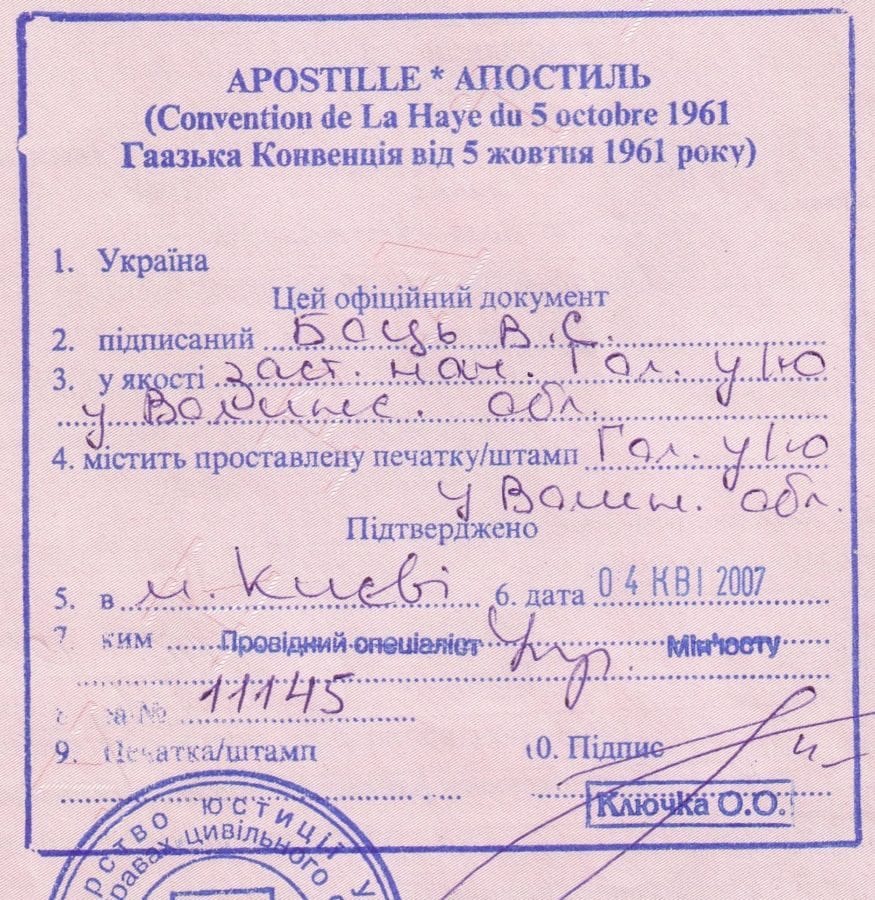 APOSTILLE * АПОСТИЛЬ
(Convention de La Haye du 5 octobre 1961
Гаазька Конвенція від 5 жовтня 1961 року)
1. Україна
Цей офіційний документ
2. підписаний Боць В.С.
3. у якості заст. нач. Гол. у/ю
у Волинс. обл.
4. містить проставлену печатку/штамп Гол. у/ю
у Волин. обл.
Підтверджено
5. в м. Києві 6. дата 04 КВІ 2007
7. ким Провідний спеціаліст Упр. Мін'юсту
за № 11145
9. Печатка/штамп 10. Підпис
Ключка О.О.
рство юстиції У
правах цивільного с